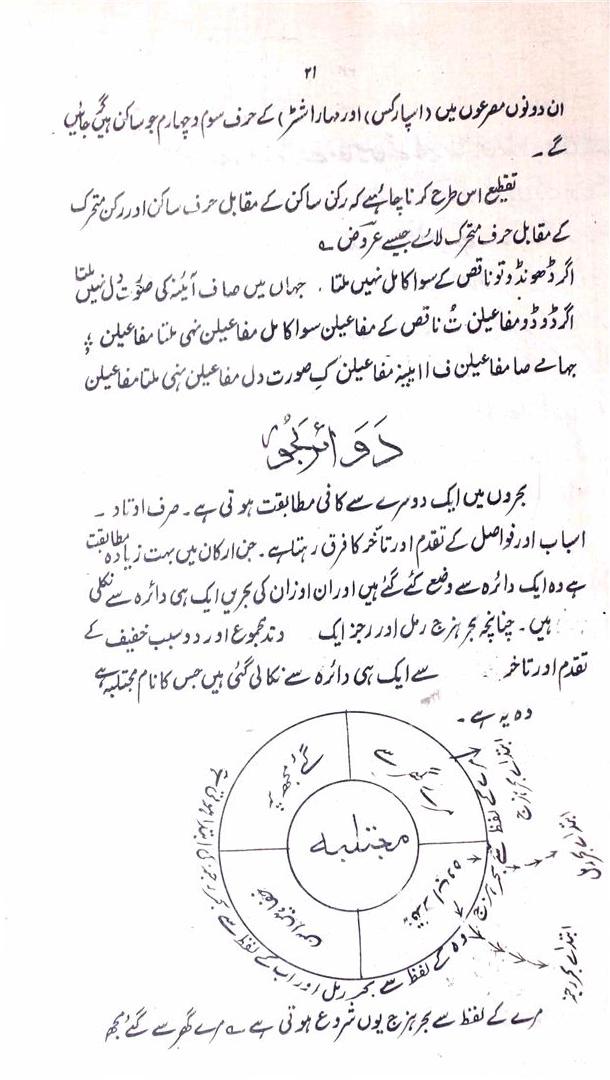 ۲۱
ان دونوں مصرعوں میں (اسپارکس) اور مہاراشٹر) کے حرف سوم و چہارم جو ساکن ہیں گر جائیں
گے ۔
تقطیع اس طرح کرنا چاہئیے کہ رکن ساکن کے مقابل حرف ساکن اور رکن متحرک
کے مقابل حرف متحرک لائے جیسے عروض ؎
اگر ڈھونڈو تو ناقص کے سوا کامل نہیں ملتا . جہاں میں صاف آئینہ کی صورت دل نہیں ملتا
اگر ڈوڈو مفاعیلن تُ ناقص کے مفاعیلن سوا کامل مفاعیلن نہی ملتا مفاعیلن ؛
جہا مے صا مفاعیلن ف اایینہ مفاعیلن کِ صورت دل مفاعیلن نہی ملتا مفاعیلن
دَوَائرِ بُحُور
بحروں میں ایک دوسرے سے کافی مطابقت ہوتی ہے ۔ صرف اوتاد ۔
اسباب اور فواصل کے تقدم اور تاخر کا فرق رہتا ہے ۔ جن ارکان میں بہت زیادہ مطابقت
ہے وہ ایک دائرہ سے وضع کئے گئے ہیں اور ان اوزان کی بحریں ایک ہی دائرہ سے نکلی
ہیں ۔ چنانچہ بحر ہزج رمل اور رجز ایک وتد مجموع اور دو سبب خفیف کے
تقدم اور تاخر سے ایک ہی دائرہ سے نکالی گئی ہیں جس کا نام مجتلبہ ہے
وہ یہ ہے ۔
مجتلبہ
مرے گھر سے
گئے مجھ
ابتدائے بحر ہزج
ابتدائے بحر رمل
ابتدائے بحر رجز
مرے کے لفظ سے بحر ہزج
وہ کے لفظ سے بحر رمل اور اب کے لفظ سے بحر رجز کی ابتدا ہوتی ہے
مرے کے لفظ سے بحر ہزج یوں شروع ہوتی ہے ؎ مرے گھر سے گئے مجھ